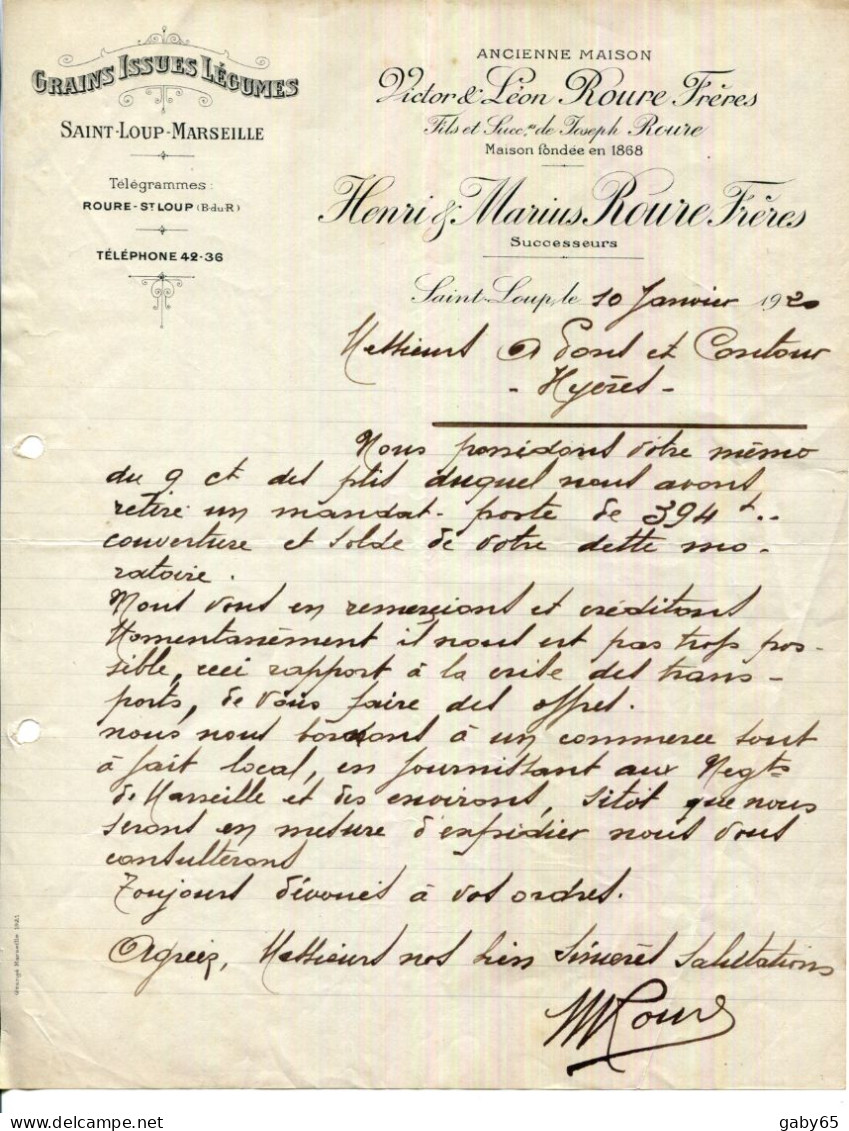 GRAINS ISSUES LÉGUMES
SAINT-LOUP-MARSEILLE
Télégrammes :
ROURE-ST LOUP (B-du-R)
TÉLÉPHONE 42-36
ANCIENNE MAISON
Victor & Léon Roure Frères
Fils et Succ.rs de Joseph Roure
Maison fondée en 1868
Henri & Marius Roure Frères
Successeurs
Saint-Loup, le 10 Janvier 1920
Messieurs A Pons et Coutour
- Hyères -
Nous possédons votre mémo
du 9 ct des plis duquel nous avons
retiré un mandat-poste de 394 f..
couverture et solde de votre dette mo-
ratoire.
Nous vous en remercions et créditons
Momentanément il nous est pas trop pos-
sible, ceci rapport à la crise des trans-
ports, de vous faire des offres.
nous nous bornons à un commerce tout
à fait local, en fournissant aux Negts
de Marseille et des environs, sitôt que nous
serons en mesure d'expédier nous vous
consulterons
Toujours dévoués à vos ordres.
Agréez, Messieurs nos bien sincères salutations
M Roure
Marseille 1921
gaby65